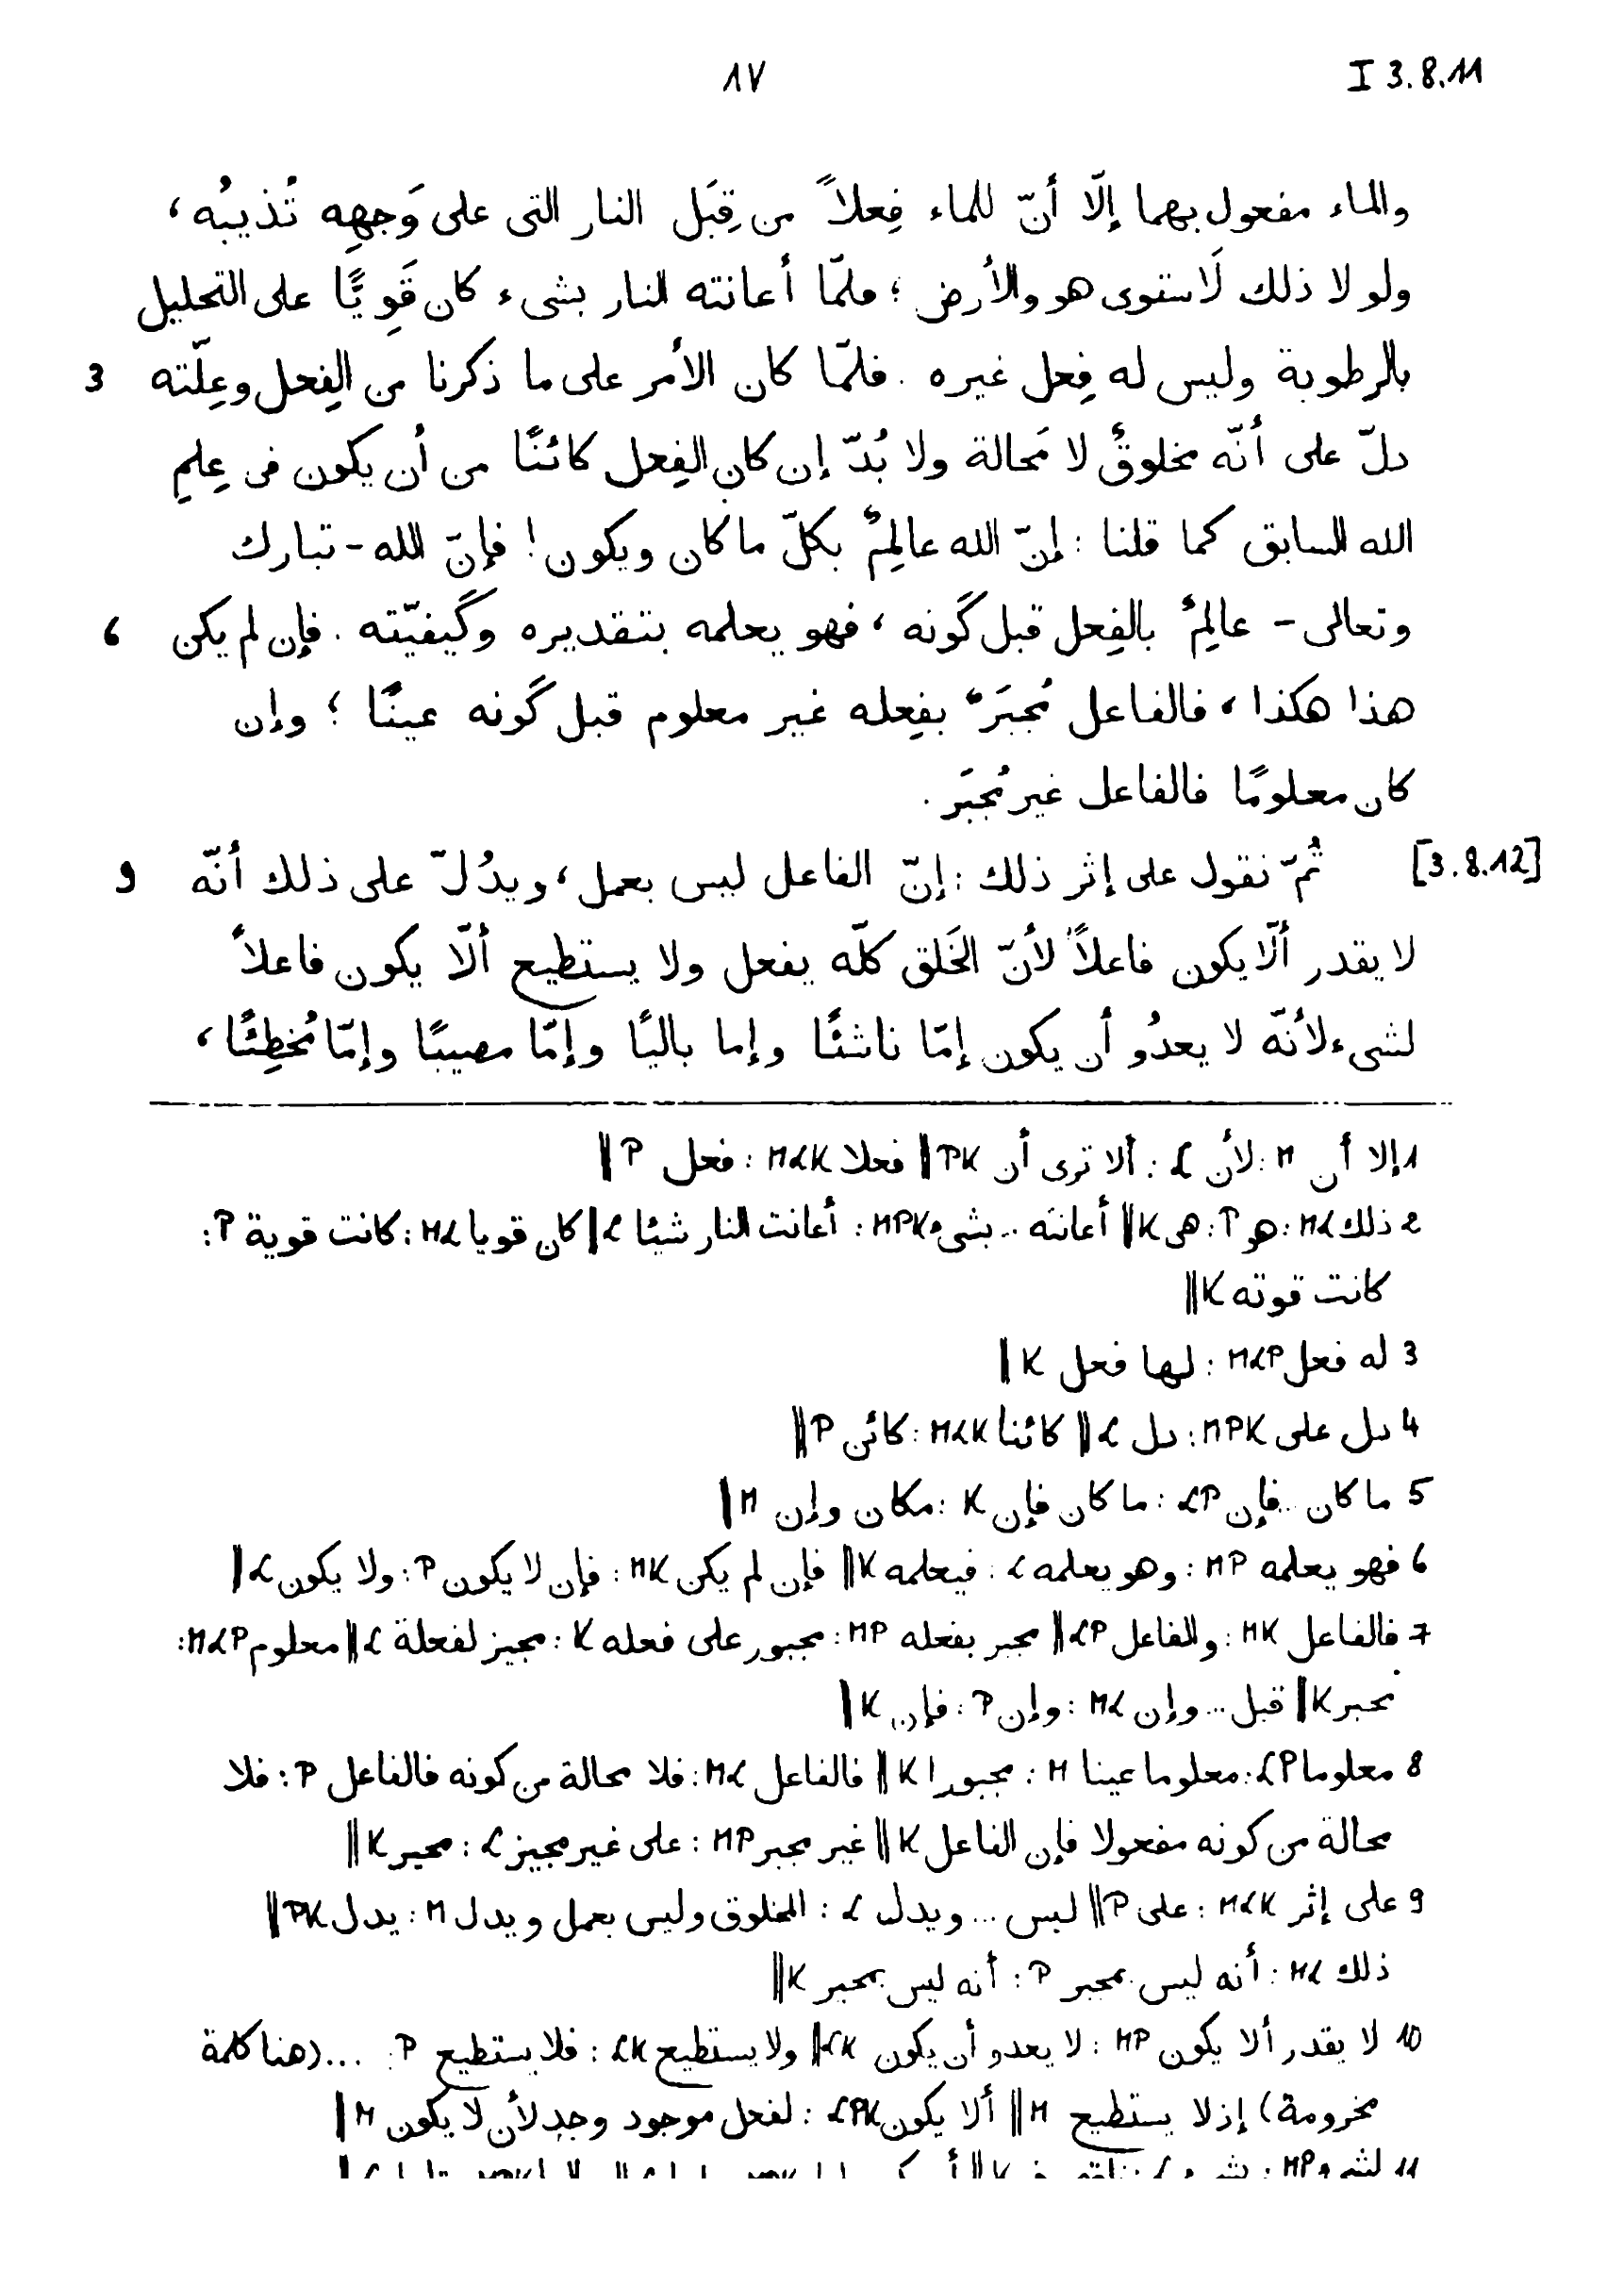 ١٧ I 3.8.11
والماء مفعول بهما إلّا أنّ للماء فِعلاً من قِبَل النار التى على وَجهِه تُذيبُه،
ولو لا ذلك لَاستوى هو والأرض؛ فلمّا أعانته النار بشىء كان قَوِيًّا على التحليل
بالرطوبة وليس له فِعل غيره. فلمّا كان الأمر على ما ذكرنا من الفِعل وعِلّته 3
دلّ على أنّه مخلوقٌ لا مَحالة ولا بُدّ إن كان الفِعل كائنًا من أن يكون فى عِلمِ
الله السابق كما قلنا: إنّ الله عالِمٌ بكلّ ما كان ويكون! فإنّ الله - تبارك
وتعالى - عالِمٌ بالفِعل قبل كَونه، فهو يعلمه بتقديره وكَيفيّته. فإن لم يكن 6
هذا هكذا، فالفاعل مُجبَرٌ بفِعله غير معلوم قبل كَونه عينًا؛ وإن
كان معلومًا فالفاعل غير مُجبَر.
[3.8.12] ثُمّ نقول على إثر ذلك: إنّ الفاعل ليس بعمل، ويدُلّ على ذلك أنّه 9
لا يقدر ألّا يكون فاعلاً لأنّ الخَلق كلّه يفعل ولا يستطيع ألّا يكون فاعلاً
لشىء لأنّه لا يعدُو أن يكون إمّا ناشئًا وإما باليًا وإمّا مصيبًا وإمّا مُخطِئًا،
1 إلا أن M: لأن L: ألا ترى أن PK || فعلا MLK: فعل P ||
2 ذلك ML: هو P: هى K || أعانته .. بشىء MPK: أعانت النار شيئا L || كان قويا ML: كانت قوية P:
كانت قوته K ||
3 له فعل MLP: لها فعل K ||
4 دل على MPK: دل L || كائنا MLK: كائن P ||
5 ما كان .. فإن LP: ما كان فإن K: مكان وإن M ||
6 فهو يعلمه MP: وهو يعلمه L: فيعلمه K || فإن لم يكن MK: فإن لا يكون P: ولا يكون L ||
7 فالفاعل MK: والفاعل LP || مجبر بفعله MP: مجبور على فعله K: مجيز لفعلة L || معلوم MLP:
مجبر K || قبل .. وإن ML: وإن P: فإن K ||
8 معلوما LP: معلوما عينا M: مجبورا K || فالفاعل ML: فلا محالة من كونه فالفاعل P: فلا
محالة من كونه مفعولا فإن الفاعل K || غير مجبر MP: على غير مجيز L: محير K ||
9 على إثر MLK: على P || ليس ... ويدل L: المخلوق وليس بعمل ويدل M: يدل PK ||
ذلك ML: أنه ليس بمجبر P: أنه ليس بمحير K ||
10 لا يقدر ألا يكون MP: لا يعدو أن يكون LK || ولا يستطيع LK: فلا يستطيع P: ... (هنا كلمة
مخرومة) إذ لا يستطيع M || ألا يكون LPK: لفعل موجود وجد لأن لا يكون M ||
11 لشىء MP: